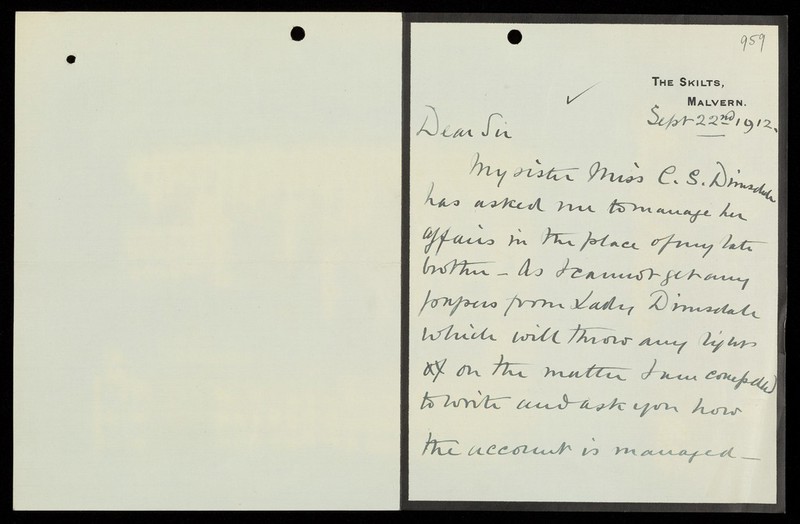 959
THE SKILTS,
MALVERN.
Sept 22nd 1912.
Dear Sir
My sister Miss C. S. Dimsdale
has asked me to manage her
affairs in the place of my late
brother – As I cannot get any
papers from Lady Dimsdale
which will throw any light
of on the matter I am compelled
to write and ask you how
the account is managed –